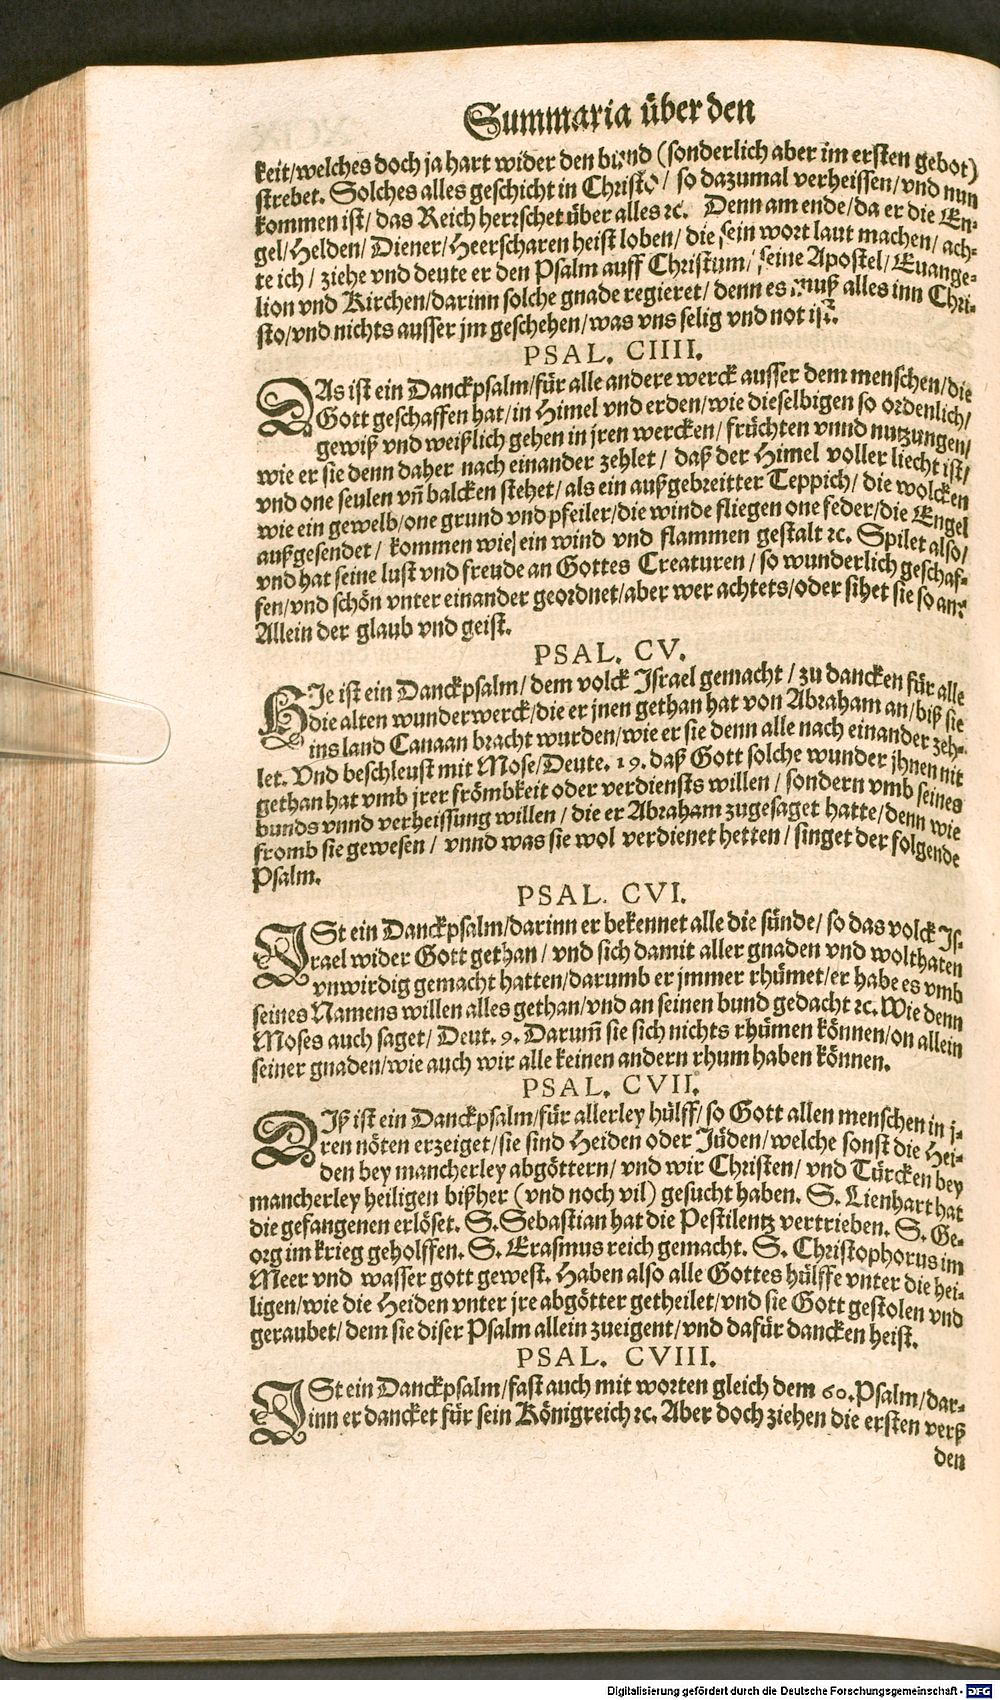 Summaria über den
keit/welches doch ja hart wider den bund (sonderlich aber im ersten gebot)
strebet. Solches alles geschicht in Christo/ so dazumal verheissen/vnd nun
kommen ist/ das Reich herrschet über alles ꝛc. Denn am ende/da er die En-
gel/Helden/Diener/Heerscharen heist loben/ die sein wort laut machen/ ach-
te ich/ ziehe vnd deute er den Psalm auff Christum/ seine Apostel/ Euange-
lion vnd Kirchen/darinn solche gnade regieret/ denn es muß alles inn Chri-
sto/vnd nichts ausser jm geschehen/was vns selig vnd not ist.
PSAL. CIIII.
DAs ist ein Danckpsalm/für alle andere werck ausser dem menschen/die
Gott geschaffen hat/in Himel vnd erden/wie dieselbigen so ordenlich/
gewiß vnd weißlich gehen in jren wercken/ früchten vnnd nutzungen/
wie er sie denn daher nach einander zehlet/ daß der Himel voller liecht ist/
vnd one seulen vñ balcken stehet/als ein außgebreitter Teppich/ die wolcken
wie ein gewelb/one grund vnd pfeiler/die winde fliegen one feder/die Engel
außgesendet/ kommen wie ein wind vnd flammen gestalt ꝛc. Spilet also/
vnd hat seine lust vnd freude an Gottes Creaturen/ so wunderlich geschaf-
fen/vnd schön vnter einander geordnet/aber wer achtets/oder sihet sie so an?
Allein der glaub vnd geist.
PSAL. CV.
HIe ist ein Danckpsalm/ dem volck Israel gemacht/ zu dancken für alle
die alten wunderwerck/die er jnen gethan hat von Abraham an/biß sie
ins land Canaan bracht wurden/wie er sie denn alle nach einander zeh-
let. Vnd beschleust mit Mose/Deute. 19. daß Gott solche wunder jhnen nit
gethan hat vmb jrer frömbkeit oder verdiensts willen/ sondern vmb seines
bunds vnnd verheissung willen/ die er Abraham zugesaget hatte/denn wie
fromb sie gewesen/ vnnd was sie wol verdienet hetten/ singet der folgende
Psalm.
PSAL. CVI.
ISt ein Danckpsalm/darinn er bekennet alle die sünde/ so das volck Is-
rael wider Gott gethan/ vnd sich damit aller gnaden vnd wolthaten
vnwirdig gemacht hatten/darumb er jmmer rhümet/er habe es vmb
seines Namens willen alles gethan/vnd an seinen bund gedacht ꝛc. Wie denn
Moses auch saget/ Deut. 9. Darum̃ sie sich nichts rhümen können/on allein
seiner gnaden/wie auch wir alle keinen andern rhum haben können.
PSAL. CVII.
DIß ist ein Danckpsalm/für allerley hülff/ so Gott allen menschen in j-
ren nöten erzeiget/sie sind Heiden oder Jüden/welche sonst die Hei-
den bey mancherley abgöttern/ vnd wir Christen/ vnd Türcken bey
mancherley heiligen bißher (vnd noch vil) gesucht haben. S. Lienhart hat
die gefangenen erlöset. S. Sebastian hat die Pestilentz vertrieben. S. Ge-
org im krieg geholffen. S. Erasmus reich gemacht. S. Christophorus im
Meer vnd wasser gott gewest. Haben also alle Gottes hülffe vnter die hei-
ligen/wie die Heiden vnter jre abgötter getheilet/vnd sie Gott gestolen vnd
geraubet/ dem sie diser Psalm allein zueigent/vnd dafür dancken heist.
PSAL. CVIII.
ISt ein Danckpsalm/fast auch mit worten gleich dem 60. Psalm/dar-
inn er dancket für sein Königreich ꝛc. Aber doch ziehen die ersten verß
den
Digitalisierung gefördert durch die Deutsche Forschungsgemeinschaft - DFG